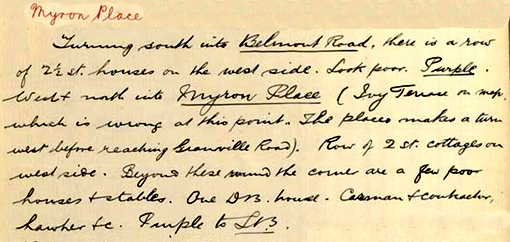 Myron Place
Turning south into Belmont Road, there is a row
of 2½ st. houses on the west side. Look poor. Purple.
West & north into Myron Place (Ivy Terrace on map
which is wrong at this point. The places makes a turn
west before reaching Granville Road). Row of 2 st. cottages on
west side. Beyond these round the corner are a few poor
houses & stables. One DB. house. Carman & contractor,
hawker &c. Purple to LB.